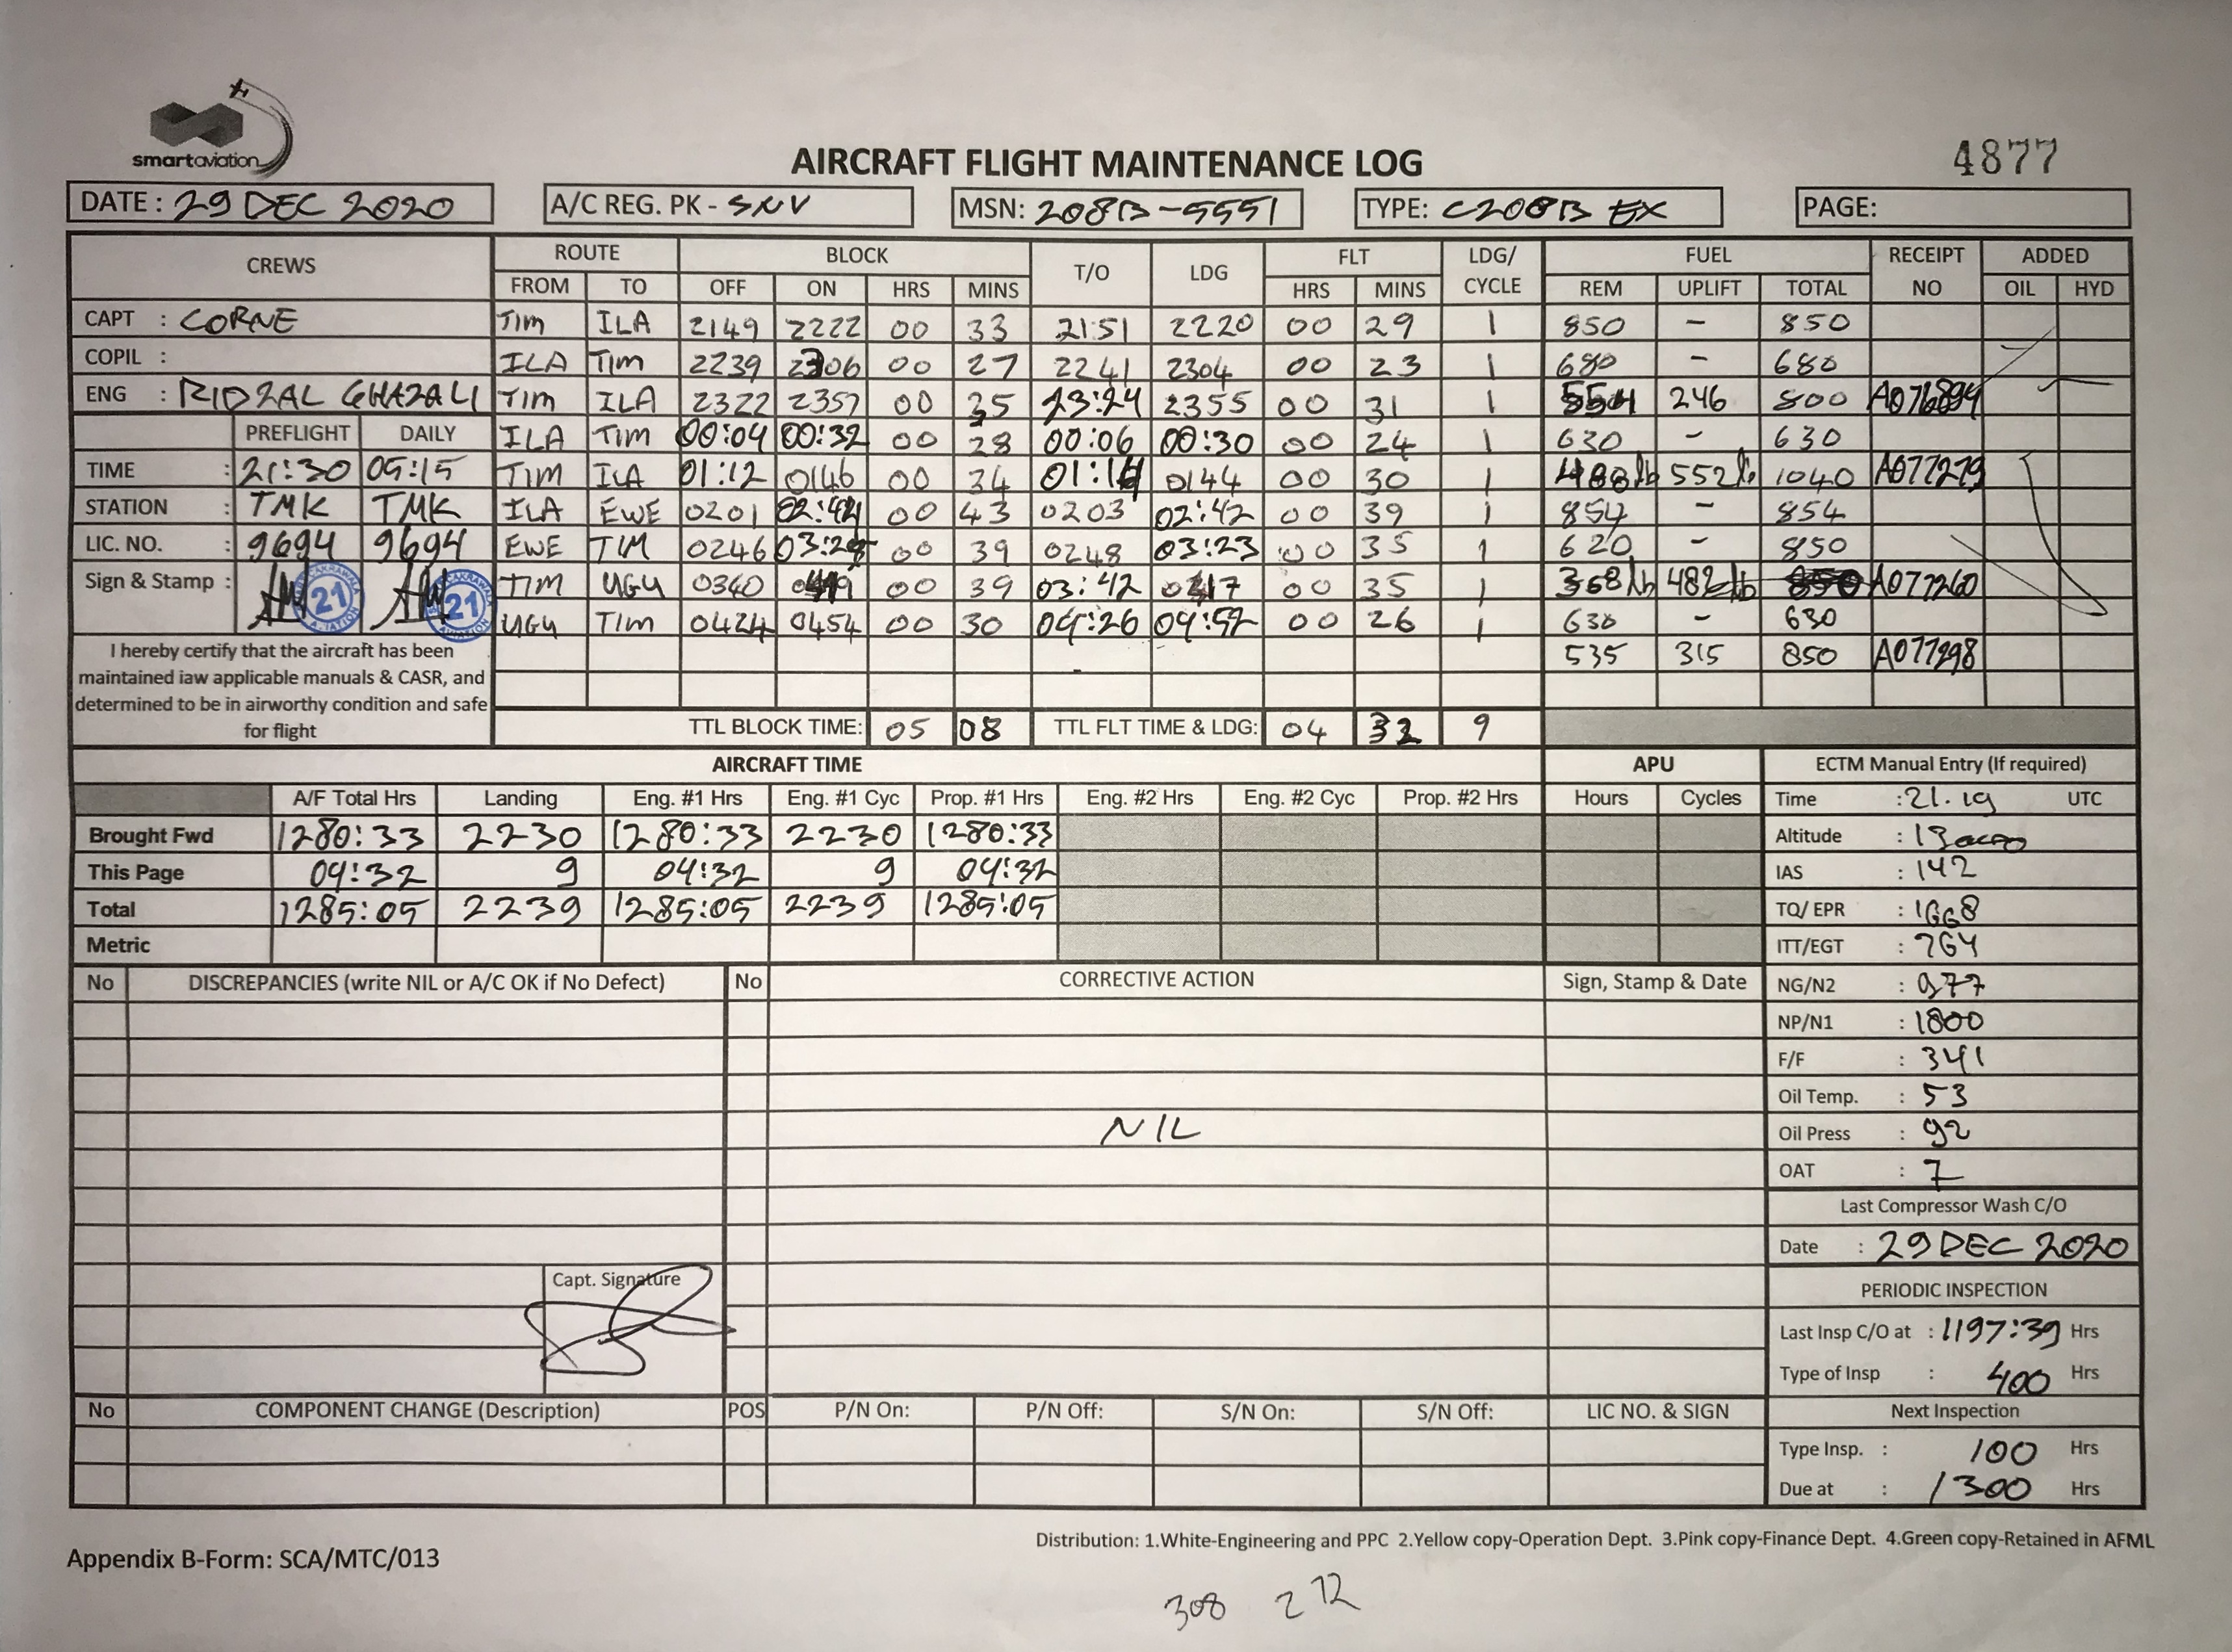 smartaviation
AIRCRAFT FLIGHT MAINTENANCE LOG
4877
DATE : 29 DEC 2020 A/C REG. PK - SNV MSN: 208B-5551 TYPE: C208B EX PAGE:
CREWS ROUTE BLOCK T/O LDG FLT LDG/ CYCLE FUEL RECEIPT NO ADDED
FROM TO OFF ON HRS MINS HRS MINS REM UPLIFT TOTAL OIL HYD
CAPT : CORNE TIM ILA 2149 2222 00 33 21:51 2220 00 29 1 850 - 850
COPIL : ILA TIM 2239 2306 00 27 2241 2304 00 23 1 680 - 680
ENG : RIDZAL GHAZALI TIM ILA 2322 2357 00 35 23:24 2355 00 31 1 554 246 800 A076894
PREFLIGHT DAILY ILA TIM 00:04 00:32 00 28 00:06 00:30 00 24 1 630 - 630
TIME : 21:30 05:15 TIM ILA 01:12 0146 00 34 01:14 0144 00 30 1 488 lb 552 lb 1040 A077279
STATION : TMK TMK ILA EWE 0201 02:44 00 43 0203 02:42 00 39 1 854 - 854
LIC. NO. : 9694 9694 EWE TIM 0246 03:25 00 39 0248 03:23 00 35 1 620 - 850
Sign & Stamp : 21 21 TIM UGU 0340 0419 00 39 03:42 0417 00 35 1 368 lb 482 lb 850 A077260
UGU TIM 0424 0454 00 30 04:26 04:52 00 26 1 630 - 630
535 315 850 A077298
I hereby certify that the aircraft has been
maintained iaw applicable manuals & CASR, and
determined to be in airworthy condition and safe
for flight
TTL BLOCK TIME: 05 08 TTL FLT TIME & LDG: 04 32 9
AIRCRAFT TIME APU ECTM Manual Entry (If required)
A/F Total Hrs Landing Eng. #1 Hrs Eng. #1 Cyc Prop. #1 Hrs Eng. #2 Hrs Eng. #2 Cyc Prop. #2 Hrs Hours Cycles Time : 21.19 UTC
Brought Fwd 1280:33 2230 1280:33 2230 1280:33 Altitude :
This Page 04:32 9 04:32 9 04:32 IAS : 142
Total 1285:05 2239 1285:05 2239 1285:05 TQ/ EPR : 1668
Metric ITT/EGT : 764
No DISCREPANCIES (write NIL or A/C OK if No Defect) No CORRECTIVE ACTION Sign, Stamp & Date NG/N2 : 977
NP/N1 : 1800
F/F : 341
Oil Temp. : 53
NIL
Oil Press : 92
OAT : 7
Last Compressor Wash C/O
Date : 29 DEC 2020
Capt. Signature
PERIODIC INSPECTION
Last Insp C/O at : 1197:39 Hrs
Type of Insp : 400 Hrs
No COMPONENT CHANGE (Description) POS P/N On: P/N Off: S/N On: S/N Off: LIC NO. & SIGN Next Inspection
Type Insp. : 100 Hrs
Due at : 1300 Hrs
Distribution: 1.White-Engineering and PPC 2.Yellow copy-Operation Dept. 3.Pink copy-Finance Dept. 4.Green copy-Retained in AFML
Appendix B-Form: SCA/MTC/013
308 272